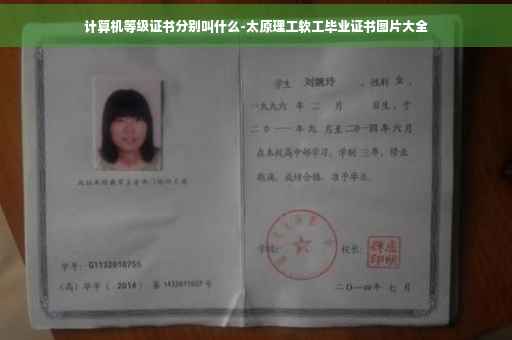 计算机等级证书分别叫什么-太原理工软工毕业证书图片大全
学生 刘婉玲 ，性别 女 ，
一九九六 年 二 月 日生，于
二〇一一年 九 月至二〇一四年 六 月
在本校高中部学习，学制 三年，修业
期满，成绩合格，准予毕业。
学号： G1132010755
(高) 毕字 ( 2014 ) 第 1432011037 号
学校：
校长：
二〇一四年 七 月